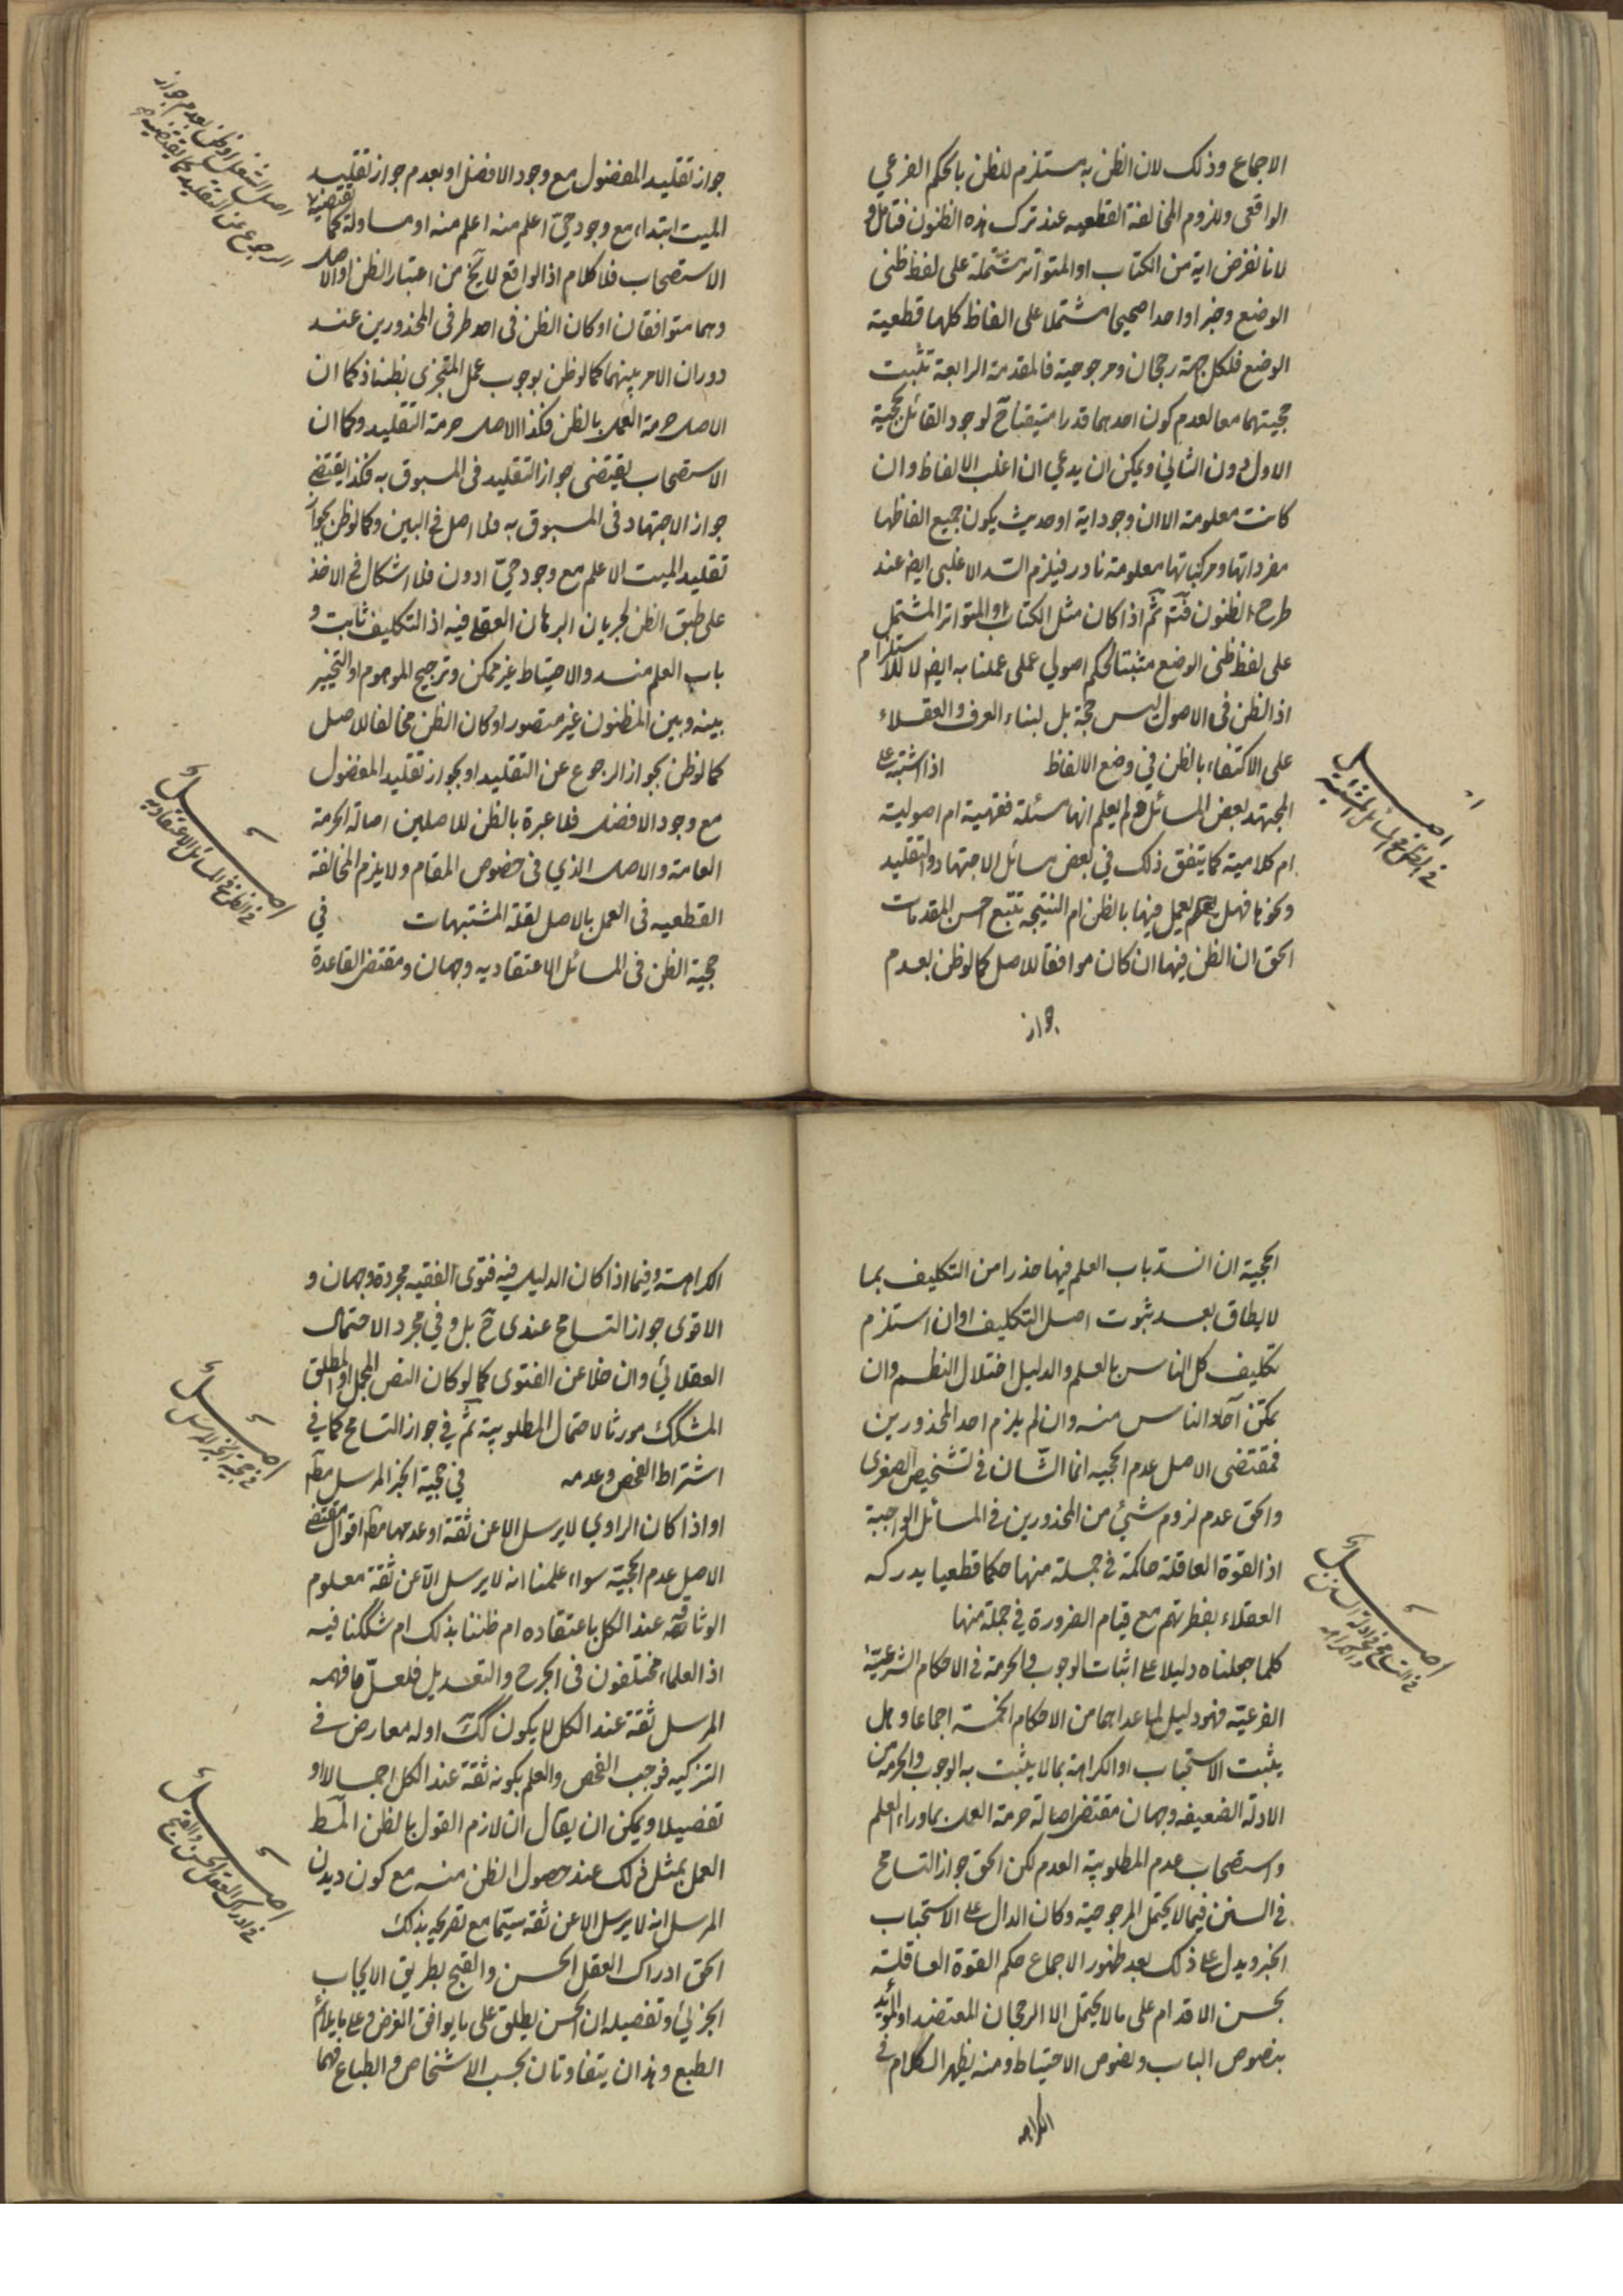 الاجماع وذلك لان الظن به مستلزم للظن بالحكم الفرعي
الواقعى ولزوم المخالفة القطعيه عند ترك هذه الظنون فتامل و
لانا نفرض اية من الكتاب او المتواتر مشتملة على لفظ ظنى
الوضع وخبرا واحدا صحيحا مشتملا على الفاظ كلها قطعية
الوضع فلكل جهة رجحان ومرجوحية فالمقدمة الرابعة تثبت
حجيتهما معا لعدم كون احدهما قدرا متيقنا ح لوجود القائل بحجية
الاول دون الثاني ويمكن ان يدعي ان اغلب الالفاظ وان
كانت معلومة الا ان وجود اية او حديث يكون جميع الفاظها
مفرداتها ومركباتها معلومة نادر فيلزم السد الاغلبى ايض عند
طرح الظنون فتم ثم اذا كان مثل الكتاب او المتواتر المشتمل
على لفظ ظنى الوضع مثبتا لحكم اصولي عملى عملنا به ايض لا للاستلزام
اذ الظن فى الاصول ليس حجة بل لبناء العرف والعقلاء
على الاكتفاء بالظن في وضع الالفاظ اذا اشتبه على
المجتهد بعض المسائل فلم يعلم انها مسئلة فقهية ام اصولية
ام كلامية كما يتفق ذلك في بعض مسائل الاجتهاد والتقليد
ونحوها فهل يعمل فيها بالظن ام النتيجه تتبع احسن المقدمات
الحق ان الظن فيها ان كان موافقا للاصل كما لوظن بعدم
جواز
اصل
في الظن في المسائل المشتبه
جواز تقليد المفضول مع وجود الافضل او بعدم جواز تقليد
الميت ابتداء مع وجود حيّ اعلم منه او مساو له كما يقتضيه
الاستصحاب فلا كلام اذ الواقع لا يخ من اعتبار الظن او الاصل
وهما متوافقان او كان الظن فى احد طرفى المحذورين عند
دوران الامر بينهما كما لوظن بوجوب عمل المتجزى بظنه اذ كما ان
الاصل حرمة العمل بالظن فكذا الاصل حرمة التقليد وكما ان
الاستصحاب يقتضى جواز التقليد فى المسبوق به فكذا يقتضي
جواز الاجتهاد فى المسبوق به فلا اصل في البين وكما لوظن بجواز
تقليد الميت الاعلم مع وجود حيّ ادون فلا اشكال في الاخذ
على طبق الظن لجريان البرهان العقلى فيه اذ التكليف ثابت و
باب العلم منسد والاحتياط غير ممكن وترجيح الموهوم او التخيير
بينه وبين المظنون غير متصور او كان الظن مخالفا للاصل
كما لوظن بجواز الرجوع عن التقليد او بجواز تقليد المفضول
مع وجود الافضل فلا عبرة بالظن للاصلين اصالة الحرمة
العامة والاصل الذي فى خصوص المقام ولا يلزم المخالفة
القطعيه فى العمل بالاصل لقلة المشتبهات في
حجية الظن فى المسائل الاعتقاديه وجهان ومقتضى القاعدة
الرجوع عن التقليد كما يقتضيه
اصل
في الظن في المسائل الاعتقاديه
الحجية ان انسد باب العلم فيها حذرا من التكليف بما
لا يطاق بعد ثبوت اصل التكليف او ان استلزم
تكليف كل الناس بالعلم والدليل اختلال النظم وان
تمكن آحاد الناس منه وان لم يلزم احد المحذورين
فمقتضى الاصل عدم الحجيه انما الشان في تشخيص الصغرى
والحق عدم لزوم شيئ من المحذورين في المسائل الواجبة
اذ القوة العاقلة حاكمة في جملة منها حكما قطعيا يدركه
العقلاء بفطرتهم مع قيام الضرورة في جملة منها
كلما جعلناه دليلا على اثبات الوجوب والحرمة فى الاحكام الشرعيّة
الفرعيّه فهو دليل لما عداهما من الاحكام الخمسة اجماعا وهل
يثبت الاستحباب او الكراهة بما لا يثبت به الوجوب والحرمه من
الادلة الضعيفه وجهان مقتضى اصالة حرمة العمل بما وراء العلم
واستصحاب عدم المطلوبية العدم لكن الحق جواز التسامح
في السنن فيما لا يحتمل المرجوحية وكان الدال على الاستحباب
الخبر ويدل على ذلك بعد ظهور الاجماع حكم القوة العاقلة
بحسن الاقدام على ما لا يحتمل الا الرجحان المعتضد او المؤيد
بنصوص الباب ونصوص الاحتياط ومنه يظهر الكلام في
الكراهه
اصل
في التسامح في ادلة السنن والكراهه
الكراهة وفيما اذا كان الدليل فيه فتوى الفقيه مجردة وجهان و
الاقوى جواز التسامح عندى ح بل وفي مجرد الاحتمال
العقلائي وان خلا عن الفتوى كما لو كان النص المجمل او المطلق
المشكك مورثا لاحتمال المطلوبية ثم في جواز التسامح كما في
اشتراط الفحص وعدمه في حجية الخبر المرسل مط
او اذا كان الراوي لا يرسل الا عن ثقة او عدمها مط اقوال مقتضى
الاصل عدم الحجية سواء علمنا انه لا يرسل الا عن ثقة معلوم
الوثاقة عند الكل باعتقاده ام ظننا بذلك ام شككنا فيه
اذ العلماء مختلفون فى الجرح والتعديل فلعلّ ما فهمه
المرسل ثقة عند الكل لا يكون كك اوله معارض في
التزكيه فوجب الفحص والعلم بكونه ثقة عند الكل اجمالا او
تفصيلا ويمكن ان يقال ان لازم القول بالظن المط
العمل بمثل ذلك عند حصول الظن منه مع كون ديدن
المرسل انه لا يرسل الا عن ثقة سيّما مع تصريحه بذلك
الحق ادراك العقل الحسن والقبح بطريق الايجاب
الجزئي وتفصيله ان الحسن يطلق على ما يوافق الغرض وعلى ما يلائم
الطبع وهذان يتفاوتان بحسب الاشخاص والطباع فهما
اصل
في حجية الخبر المرسل
اصل
في ادراك العقل الحسن والقبح